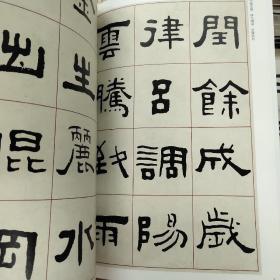 閏餘成歲
律呂調陽
雲騰致雨
金生麗水
出昆岡